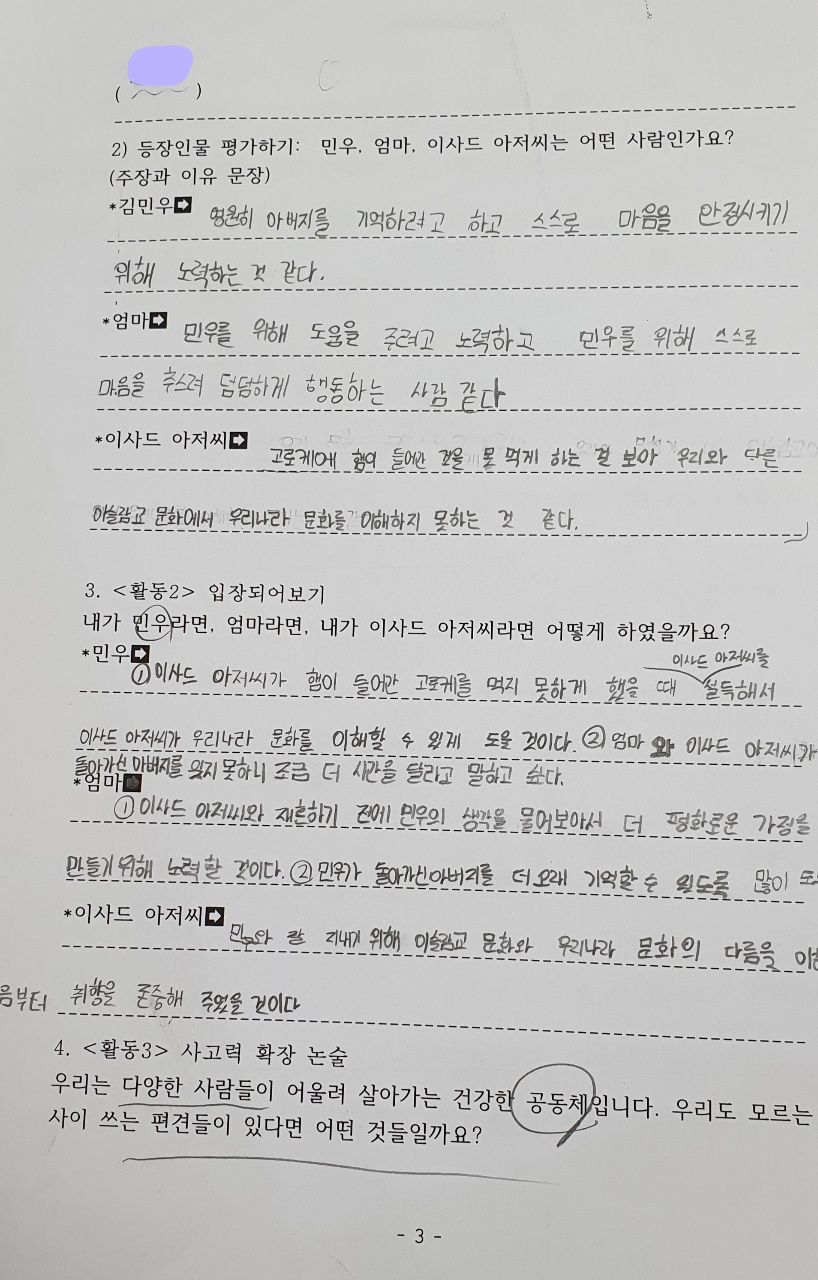 2) 등장인물 평가하기: 민우, 엄마, 이사드 아저씨는 어떤 사람인가요?
(주장과 이유 문장)
*김민우➡ 영원히 아버지를 기억하려고 하고 스스로 마음을 안정시키기
위해 노력하는 것 같다.
*엄마➡ 민우를 위해 도움을 주려고 노력하고 민우를 위해 스스로
마음을 추스려 덤덤하게 행동하는 사람 같다
*이사드 아저씨➡ 고로케에 햄이 들어간 것을 못 먹게 하는 걸 보아 우리와 다른
이슬람교 문화에서 우리나라 문화를 이해하지 못하는 것 같다.
3. <활동2> 입장되어보기
내가 민우라면, 엄마라면, 내가 이사드 아저씨라면 어떻게 하였을까요?
이사드 아저씨를
*민우➡ ①이사드 아저씨가 햄이 들어간 고로케를 먹지 못하게 했을 때 설득해서
이사드 아저씨가 우리나라 문화를 이해할 수 있게 도울 것이다. ②엄마와 이사드 아저씨가
돌아가신 아버지를 잊지 못하니 조금 더 시간을 달라고 말하고 싶다.
*엄마➡ ①이사드 아저씨와 재혼하기 전에 민우의 생각을 물어보아서 더 평화로운 가정을
만들기 위해 노력할 것이다. ②민우가 돌아가신 아버지를 더 오래 기억할 수 있도록 많이
*이사드 아저씨➡ 민우와 잘 지내기 위해 이슬람교 문화와 우리나라 문화의 다름을
음부터 취향을 존중해 주었을 것이다
4. <활동3> 사고력 확장 논술
우리는 다양한 사람들이 어울려 살아가는 건강한 공동체입니다. 우리도 모르는
사이 쓰는 편견들이 있다면 어떤 것들일까요?
- 3 -